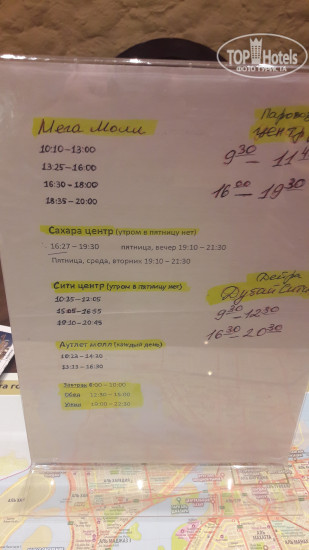 TOP Hotels
ФОТО ТУРИСТА
Мега Молл
10:10-13:00
13:25-16:00
16:30-18:00
18:35-20:00
9 30 - 11 4
16 00 - 19 30
Сахара центр (утром в пятницу нет)
16:27 – 19:30 пятница, вечер 19:10 – 21:30
Пятница, среда, вторник 19:10 – 21:30
Сити центр (утром в пятницу нет)
10:35 – 12:05
15:05 – 16:55
19:10 – 20:45
Дубай Сити
9 30 - 12 30
16 30 - 20 30
Аутлет молл (каждый день)
Завтрак
Обед
Ужин